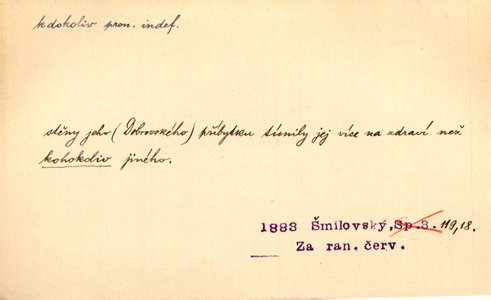 kdokoliv pron. indef.
stěny jeho (Dobrovského) příbytku tísnily jej více na zdraví než
kohokoliv jiného.
1883 Šmilovský, Sp.3. 119,18.
Za ran. červ.